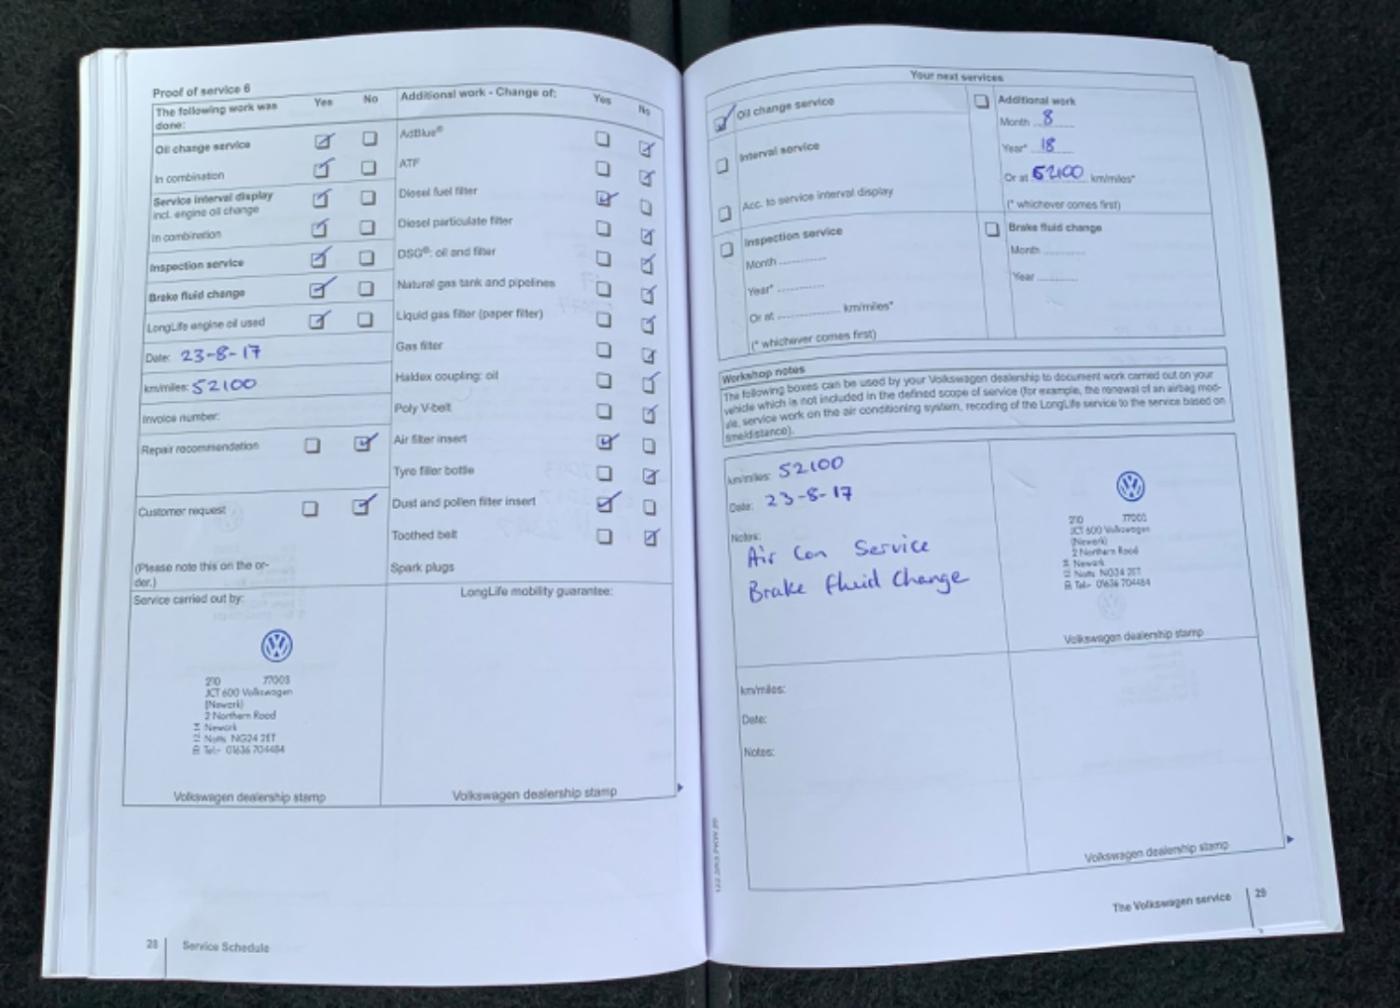 Proof of service 6
The following work was done: Yes No
Oil change service
In combination
Service interval display
incl. engine oil change
In combination
Inspection service
Brake fluid change
LongLife engine oil used
Date: 23-8-17
km/miles: 52100
Invoice number:
Repair recommendation
Customer request
(Please note this on the or-
der.)
Service carried out by:
210 77003
JCT 600 Volkswagen
(Newark)
2 Northern Road
Newark
Notts NG24 2ET
Tel:- 01636 704484
Volkswagen dealership stamp
Additional work - Change of: Yes No
AdBlue®
ATF
Diesel fuel filter
Diesel particulate filter
DSG®: oil and filter
Natural gas tank and pipelines
Liquid gas filter (paper filter)
Gas filter
Haldex coupling: oil
Poly V-belt
Air filter insert
Tyre filler bottle
Dust and pollen filter insert
Toothed belt
Spark plugs
LongLife mobility guarantee:
Volkswagen dealership stamp
28 Service Schedule
Your next services
Oil change service
Interval service
Acc. to service interval display
Inspection service
Month ............
Year* ............
Or at ................ km/miles*
(* whichever comes first)
Additional work
Month 8
Year* 18
Or at 62100 km/miles*
(* whichever comes first)
Brake fluid change
Month ............
Year ............
Workshop notes
The following boxes can be used by your Volkswagen dealership to document work carried out on your
vehicle which is not included in the defined scope of service (for example, the renewal of an airbag mod-
ule, service work on the air conditioning system, recoding of the LongLife service to the service based on
time/distance).
km/miles: 52100
Date: 23-8-17
Notes:
Air Con Service
Brake Fluid Change
210 77003
JCT 600 Volkswagen
(Newark)
2 Northern Road
Newark
Notts NG24 2ET
Tel:- 01636 704484
Volkswagen dealership stamp
km/miles:
Date:
Notes:
Volkswagen dealership stamp
The Volkswagen service 29